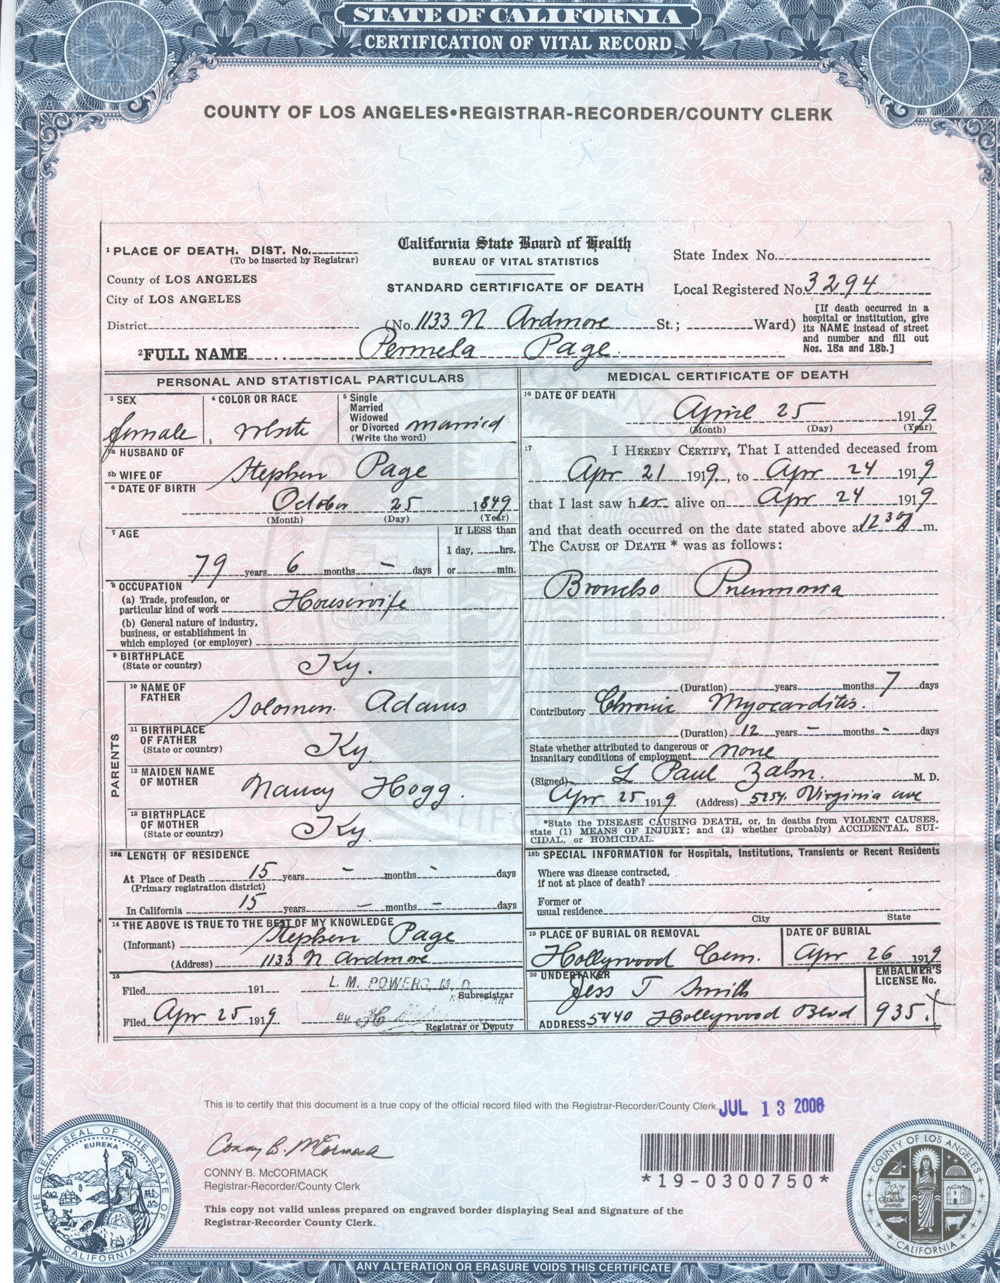 STATE OF CALIFORNIA
CERTIFICATION OF VITAL RECORD
COUNTY OF LOS ANGELES•REGISTRAR-RECORDER/COUNTY CLERK
1 PLACE OF DEATH. DIST. No.
(To be inserted by Registrar)
County of LOS ANGELES
City of LOS ANGELES
California State Board of Health
BUREAU OF VITAL STATISTICS
STANDARD CERTIFICATE OF DEATH
State Index No.
Local Registered No. 3294
District (No. 1133 N Ardmore St.; Ward)
[If death occurred in a
hospital or institution, give
its NAME instead of street
and number and fill out
Nos. 18a and 18b.]
2 FULL NAME Permela Page
PERSONAL AND STATISTICAL PARTICULARS
3 SEX female
4 COLOR OR RACE white
5 Single
Married
Widowed
or Divorced married
(Write the word)
5a HUSBAND OF
5b WIFE OF Stephen Page
6 DATE OF BIRTH
October 25 1849
(Month) (Day) (Year)
7 AGE
If LESS than
1 day, hrs.
or min.
79 years 6 months - days
8 OCCUPATION
(a) Trade, profession, or
particular kind of work Housewife
(b) General nature of industry,
business, or establishment in
which employed (or employer)
9 BIRTHPLACE
(State or country) Ky.
PARENTS
10 NAME OF
FATHER Solomon Adams
11 BIRTHPLACE
OF FATHER
(State or country) Ky.
12 MAIDEN NAME
OF MOTHER Nancy Hogg.
13 BIRTHPLACE
OF MOTHER
(State or country) Ky
18a LENGTH OF RESIDENCE
At Place of Death 15 years - months - days
(Primary registration district)
In California 15 years - months - days
14 THE ABOVE IS TRUE TO THE BEST OF MY KNOWLEDGE
(Informant) Stephen Page
(Address) 1133 N Ardmore
15
Filed 191 L. M. POWERS, M. D.
Subregistrar
Filed Apr 25 1919 By
Registrar or Deputy
MEDICAL CERTIFICATE OF DEATH
16 DATE OF DEATH
April 25 1919
(Month) (Day) (Year)
17 I HEREBY CERTIFY, That I attended deceased from
Apr 21 1919, to Apr 24 1919
that I last saw her alive on Apr 24 1919
and that death occurred on the date stated above at 12 30 A m.
The CAUSE OF DEATH * was as follows:
Broncho Pneumonia
(Duration) years months 7 days
Contributory Chronic Myocarditis.
(Duration) 12 years - months - days
State whether attributed to dangerous or
insanitary conditions of employment none
(Signed) L Paul Zahn. M. D.
Apr 25 1919 (Address) 5254 Virginia ave
*State the DISEASE CAUSING DEATH, or, in deaths from VIOLENT CAUSES,
state (1) MEANS OF INJURY; and (2) whether (probably) ACCIDENTAL, SUI-
CIDAL, or HOMICIDAL.
18b SPECIAL INFORMATION for Hospitals, Institutions, Transients or Recent Residents
Where was disease contracted,
if not at place of death?
Former or
usual residence
City State
19 PLACE OF BURIAL OR REMOVAL
Hollywood Cem.
DATE OF BURIAL
Apr 26 1919
20 UNDERTAKER
Jess T Smith
ADDRESS 5440 Hollywood Blvd
EMBALMER'S
LICENSE No.
935.
This is to certify that this document is a true copy of the official record filed with the Registrar-Recorder/County Clerk.
JUL 13 2006
Conny B. McCormack
CONNY B. McCORMACK
Registrar-Recorder/County Clerk
*19-0300750*
This copy not valid unless prepared on engraved border displaying Seal and Signature of the
Registrar-Recorder County Clerk.
THE GREAT SEAL OF THE STATE OF CALIFORNIA
EUREKA
COUNTY OF LOS ANGELES
CALIFORNIA
ANY ALTERATION OR ERASURE VOIDS THIS CERTIFICATE